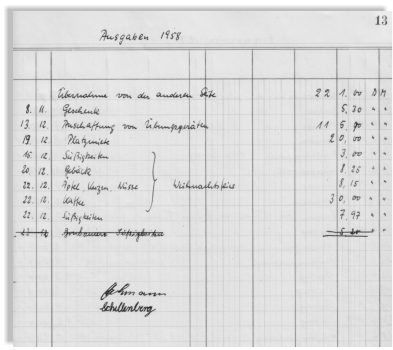 13
Ausgaben 1958
Übernahme von der anderen Seite 221.00 DM
8. 11. Geschenk 5,30 " "
13. 12. Anschaffung von Übungsgeräten 115,90 " "
19. 12. Platzmiete 20,00 " "
16. 12. Süßigkeiten 3,00 " "
20. 12. Gebäck 8,25 " "
22. 12. Äpfel, Kerzen, Nüsse Weihnachtsfeier 8,15 " "
22. 12. Kaffee 30,00 " "
22. 12. Süßigkeiten 7,97 " "
Schellenberg